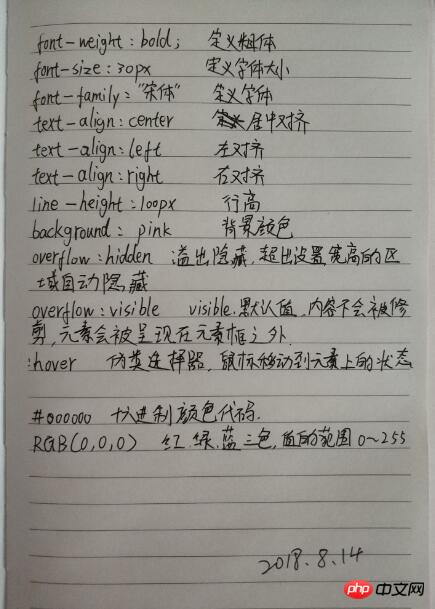 font-weight:bold; 定义粗体
font-size:30px 定义字体大小
font-family:"宋体" 定义字体
text-align:center 居中对齐
text-align:left 左对齐
text-align:right 右对齐
line-height:100px 行高
background: pink 背景颜色
overflow:hidden 溢出隐藏,超出设置宽高的区
域自动隐藏
overflow:visible visible.默认值,内容不会被修
剪,元素会被呈现在元素框之外.
:hover 伪类选择器,鼠标移动到元素上的状态
#000000 十六进制颜色代码.
RGB(0,0,0) 红.绿.蓝三色,值的范围0~255
2018.8.14
php中文网